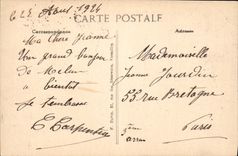 Le 25 Aout 1924
CARTE POSTALE
Correspondance
Adresse
Ma chere Jeanne
Un grand bonjour
de Melun
a bientot
Je t'embrasse
E Carpentier
Mademoiselle
Jeanne Jourdin
55 rue Bretagne
Paris
3eme
arron